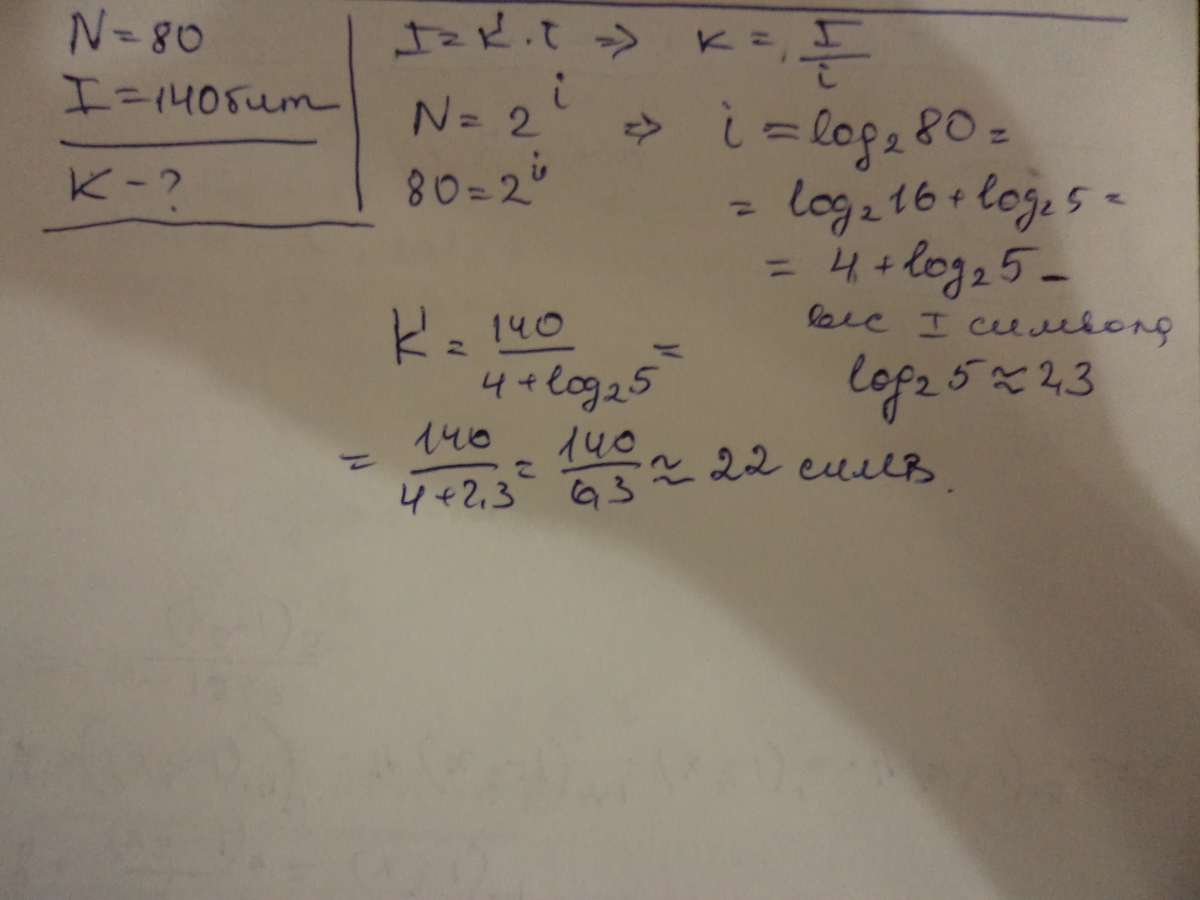 N = 80
I = 140 бит
K - ?
I = K · i ⇒ K = I / i
N = 2^i ⇒ i = log₂ 80 =
80 = 2^i
= log₂ 16 + log₂ 5 =
= 4 + log₂ 5 -
вес 1 символа
log₂ 5 ≈ 2,3
K = 140 / (4 + log₂ 5) =
= 140 / (4 + 2,3) = 140 / 6,3 ≈ 22 симв.